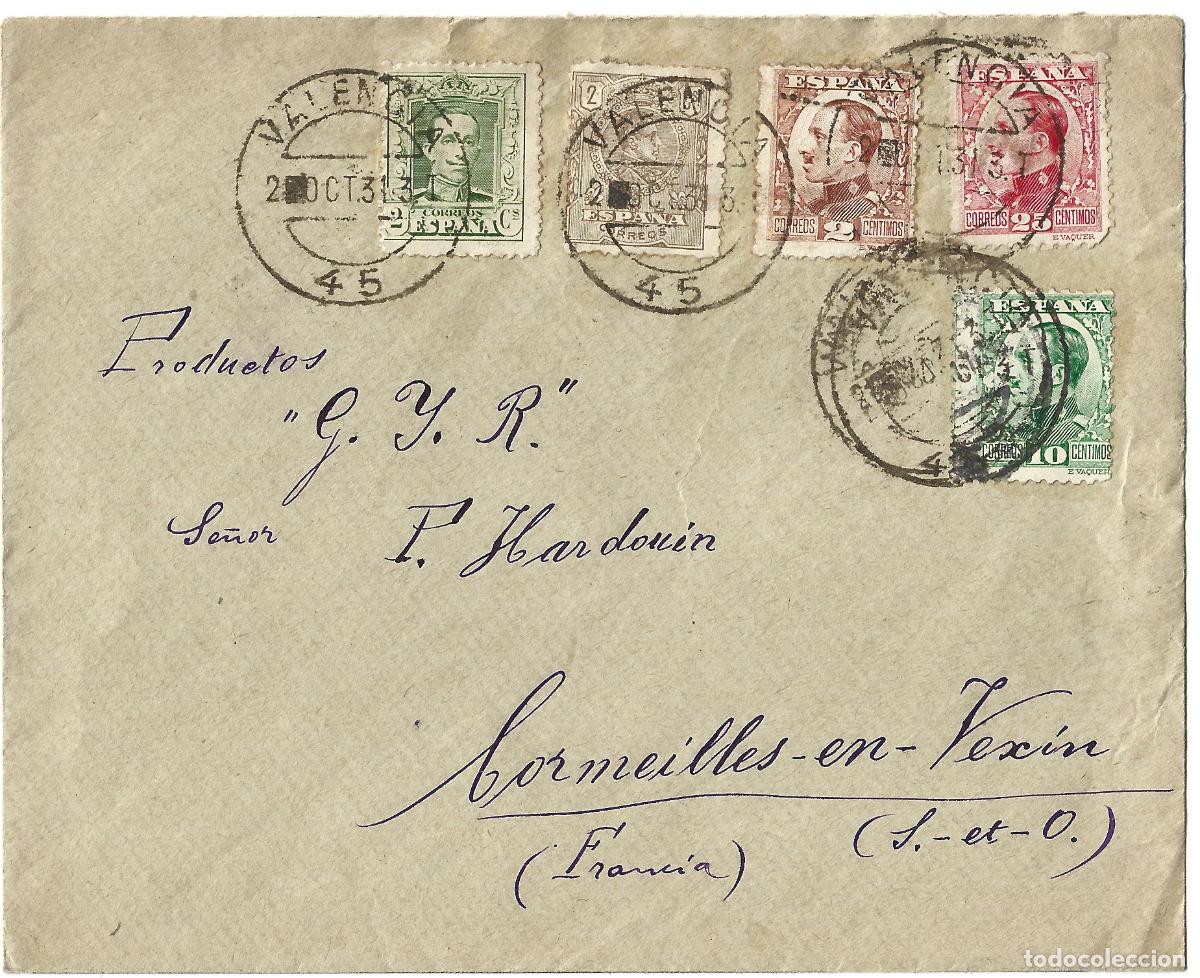 VALENCIA
2 OCT.31.3
45
2 CORREOS Cs
ESPAÑA
VALENCIA
2 OCT 31 3
45
2
ESPAÑA
CORREOS
ESPAÑA
CORREOS 2 CENTIMOS
E. VAQUER
VALENCIA
.31 3
ESPAÑA
CORREOS 25 CENTIMOS
E. VAQUER
ESPAÑA
CORREOS 10 CENTIMOS
E. VAQUER
Productos
"G. Y. R."
Señor F. Hardouin
Cormeilles-en-Vexin
(S.-et-O.)
(Francia)
todocoleccion